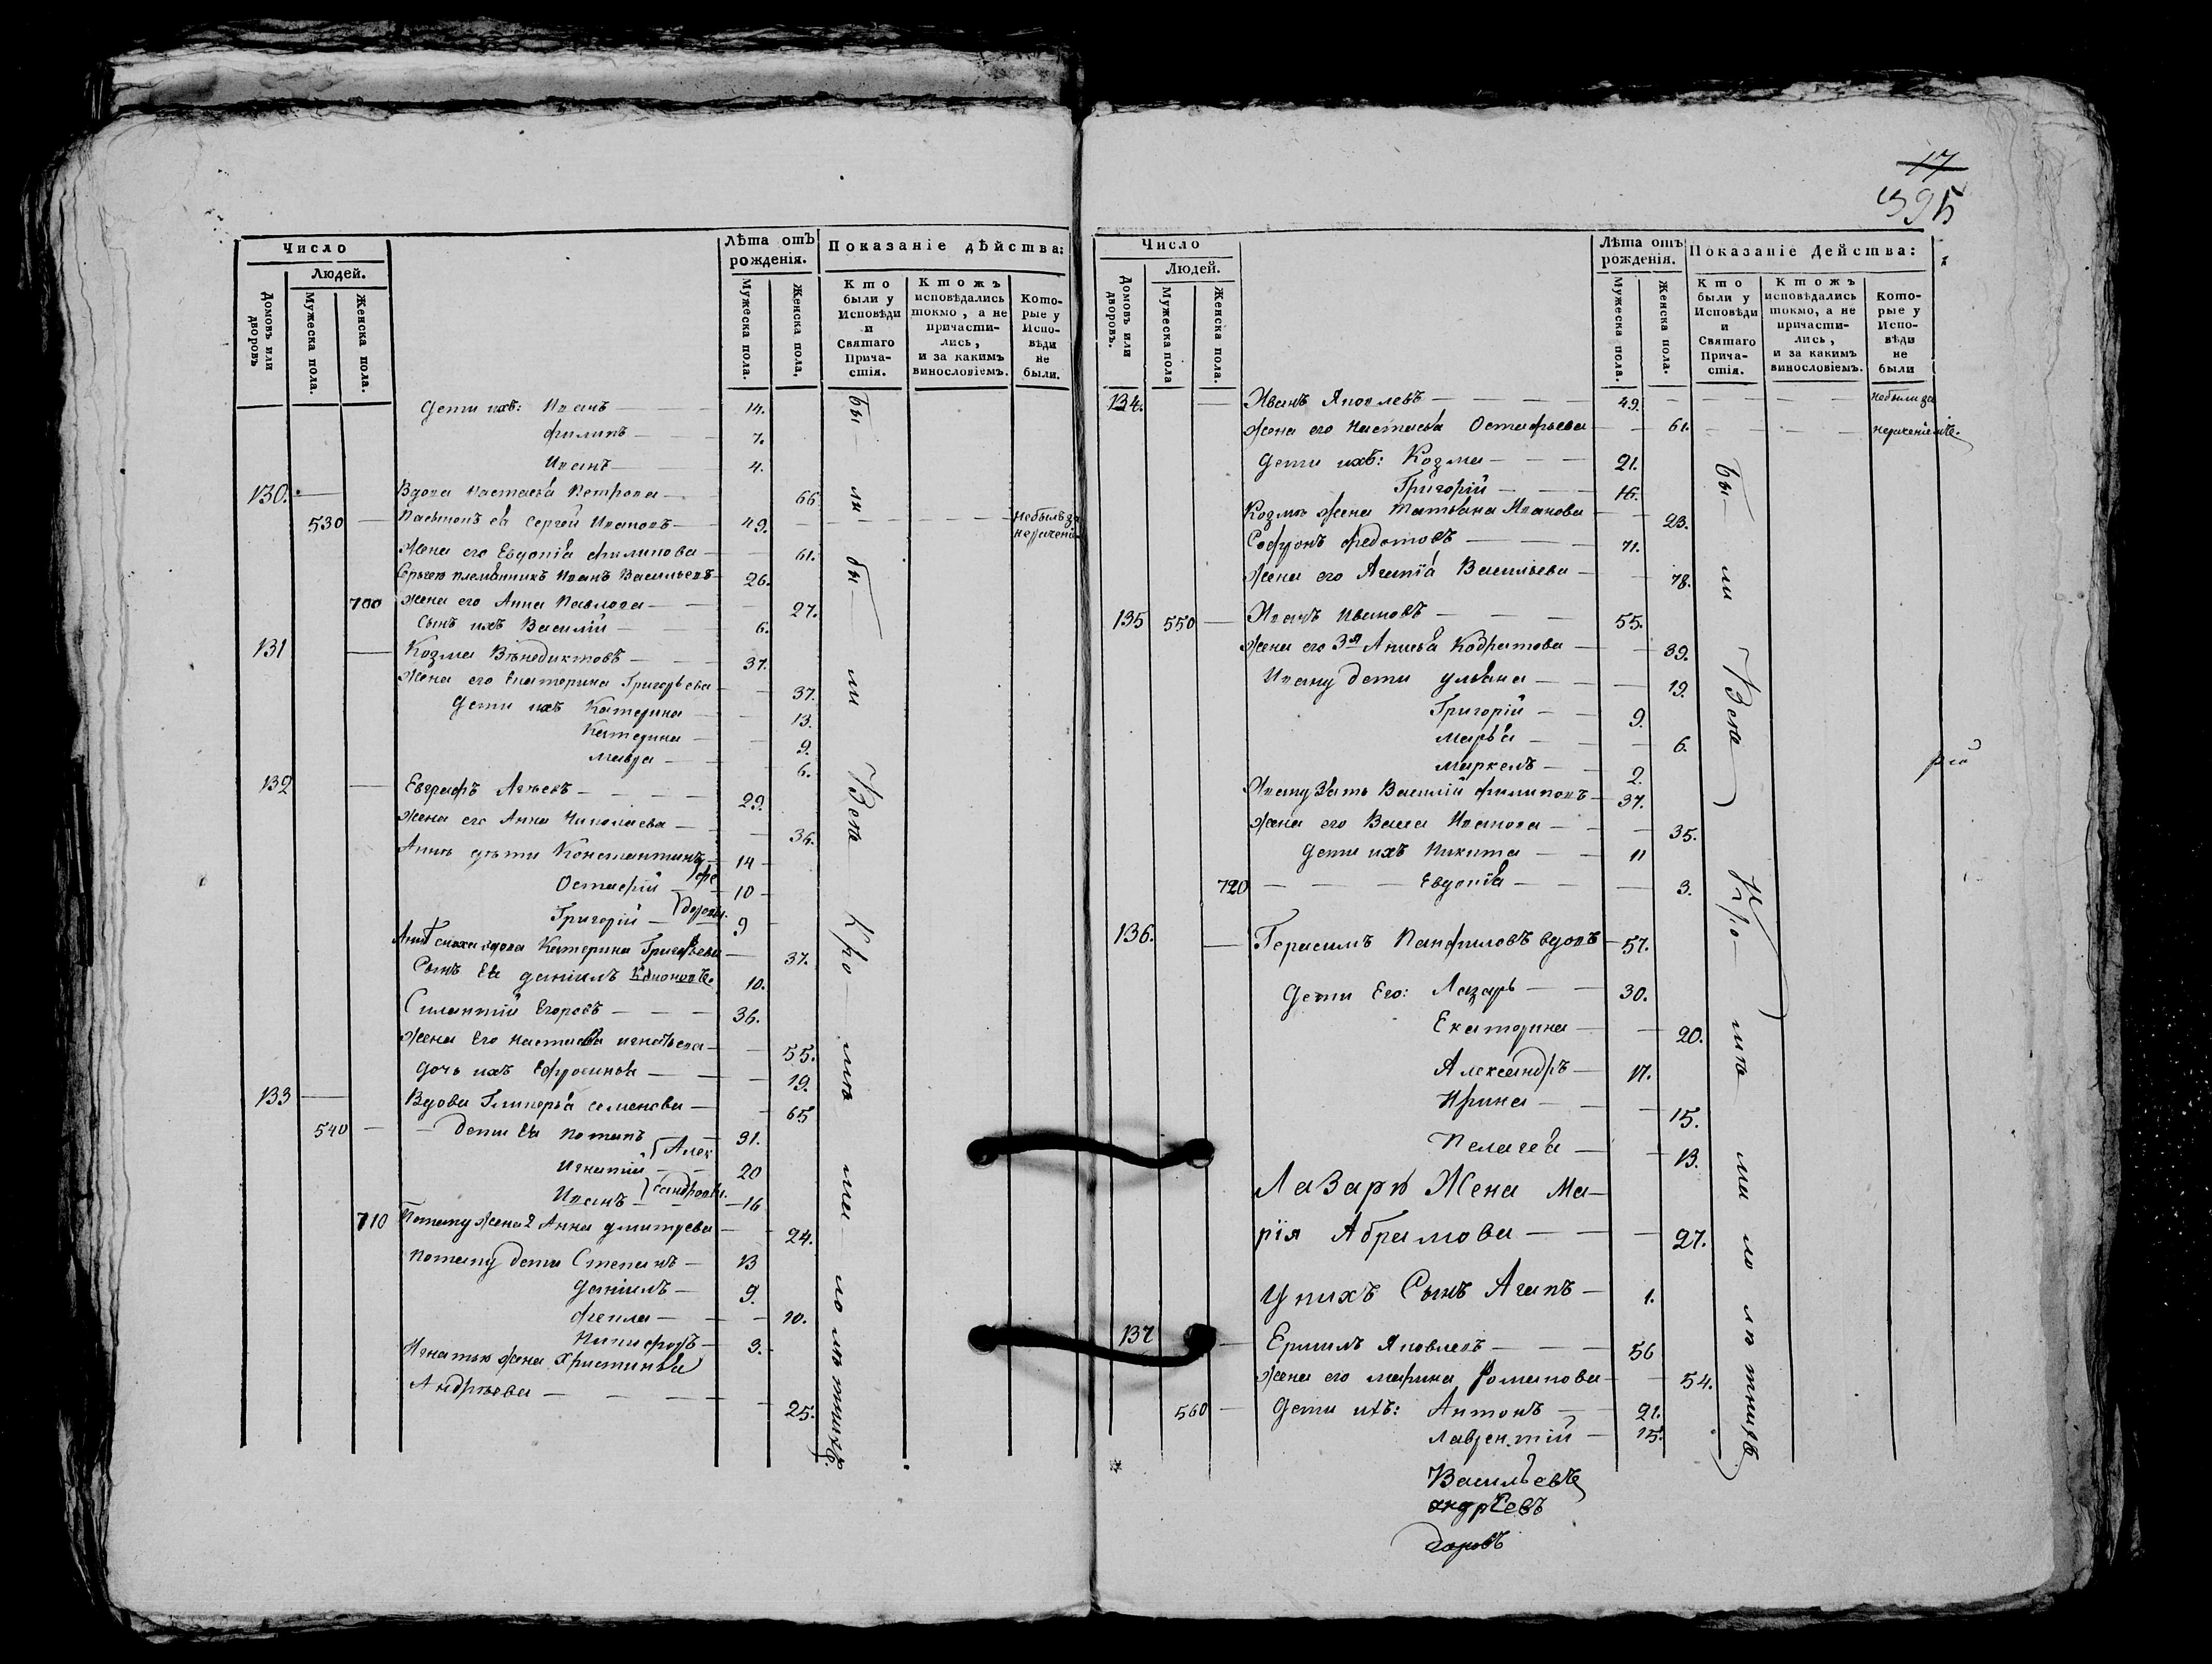 Число
Людей.
Домовъ или дворовъ
Мужеска пола.
Женска пола.
Лѣта отъ рожденія.
Мужеска пола.
Женска пола.
Показаніе дѣйства:
Кто были у Исповѣди и Святаго Прича- стія.
Ктожъ исповѣдались токмо, а не причасти- лись, и за какимъ винословіемъ.
Кото- рые у Испо- вѣди не были.
дети ихъ: Иванъ 14.
Филипъ 7.
Иванъ 4.
130. Вдова Настасья Петрова 66
530 Сергей Ивановъ 49. небылъ за
Жена его Евдопія Филипова 61.
племянникъ Иванъ Васильевъ 26.
700 жена его Анна Павлова 27.
Сынъ ихъ Василій 6.
131 Козма Вѣнедиктовъ 37.
Жена его Екатерина Григорьева 37.
дети ихъ Катерина 13.
Катерина 9.
Мавра 6.
132 Евграфъ Агѣевъ 29.
Жена его Анна Николаева 34.
Анны дѣти Константинъ 14
Остафій 10
Григорій 9
вдова Катерина Григорьева 37.
Сынъ Ея Даніилъ 10.
Силантій Егоровъ 36.
Жена Его Настасья Игнатьева 55.
дочь ихъ Ефросинья 19.
133 Вдова Гликерья Семенова 65
540 дети Ея Потапъ 31.
Игнатій 20
Иванъ 16
Александровы
710 Потапу жена 2 Анна Дмитрева 24.
Потапу дети Степанъ 13
Даніилъ 9.
Фекла 10.
Никифоръ 3.
Игнатью жена Христинья
Андрѣева 25.
бы ли бы ли Все Кро мѣ ма ло лѣтнихъ
17
395
Число
Людей.
Домовъ или дворовъ.
Мужеска пола
Женска пола.
Лѣта отъ рожденія.
Мужеска пола.
Женска пола.
Показаніе Действа:
Кто были у Исповѣди и Святаго Прича- стія.
Ктожъ исповѣдались токмо, а не причасти- лись, и за какимъ винословіемъ.
Кото- рые у Испо- вѣди не были
134. Иванъ Яковлевъ 49. небыли за
Жена его Настасья Остафьева 61. нераченіемъ.
дети ихъ: Козма 21.
Григорій 16.
Козмы жена Татьяна Иванова 23.
Софронъ Федотовъ 71.
Жена его Агапія Васильева 78.
135 550 Иванъ Ивановъ 55.
Жена его 3я Анисья Кодратова 39.
Ивану дети Ульяна 19.
Григорій 9.
Марья 6.
Маркелъ 2.
Ивану Зять Василій Филиповъ 37.
Жена его Васса Иванова 35.
дети ихъ Никита 11
720 Евдопія 3.
136. Герасимъ Панфиловъ вдовъ 57.
дети Его: Лазарь 30.
Екатерина 20.
Александръ 17.
Ирина 15.
Пелагея 13.
Лазаря Жена Ма-
рія Абрамова 27.
У нихъ Сынъ Агапъ 1.
137 Ермилъ Яковлевъ 56
Жена его Марина Романова 54.
560 дети ихъ: Антонъ 21.
Лаврентій 15.
Васильевъ
андрѣевъ
бы ли Все Кро мѣ ма ло лѣтнихъ